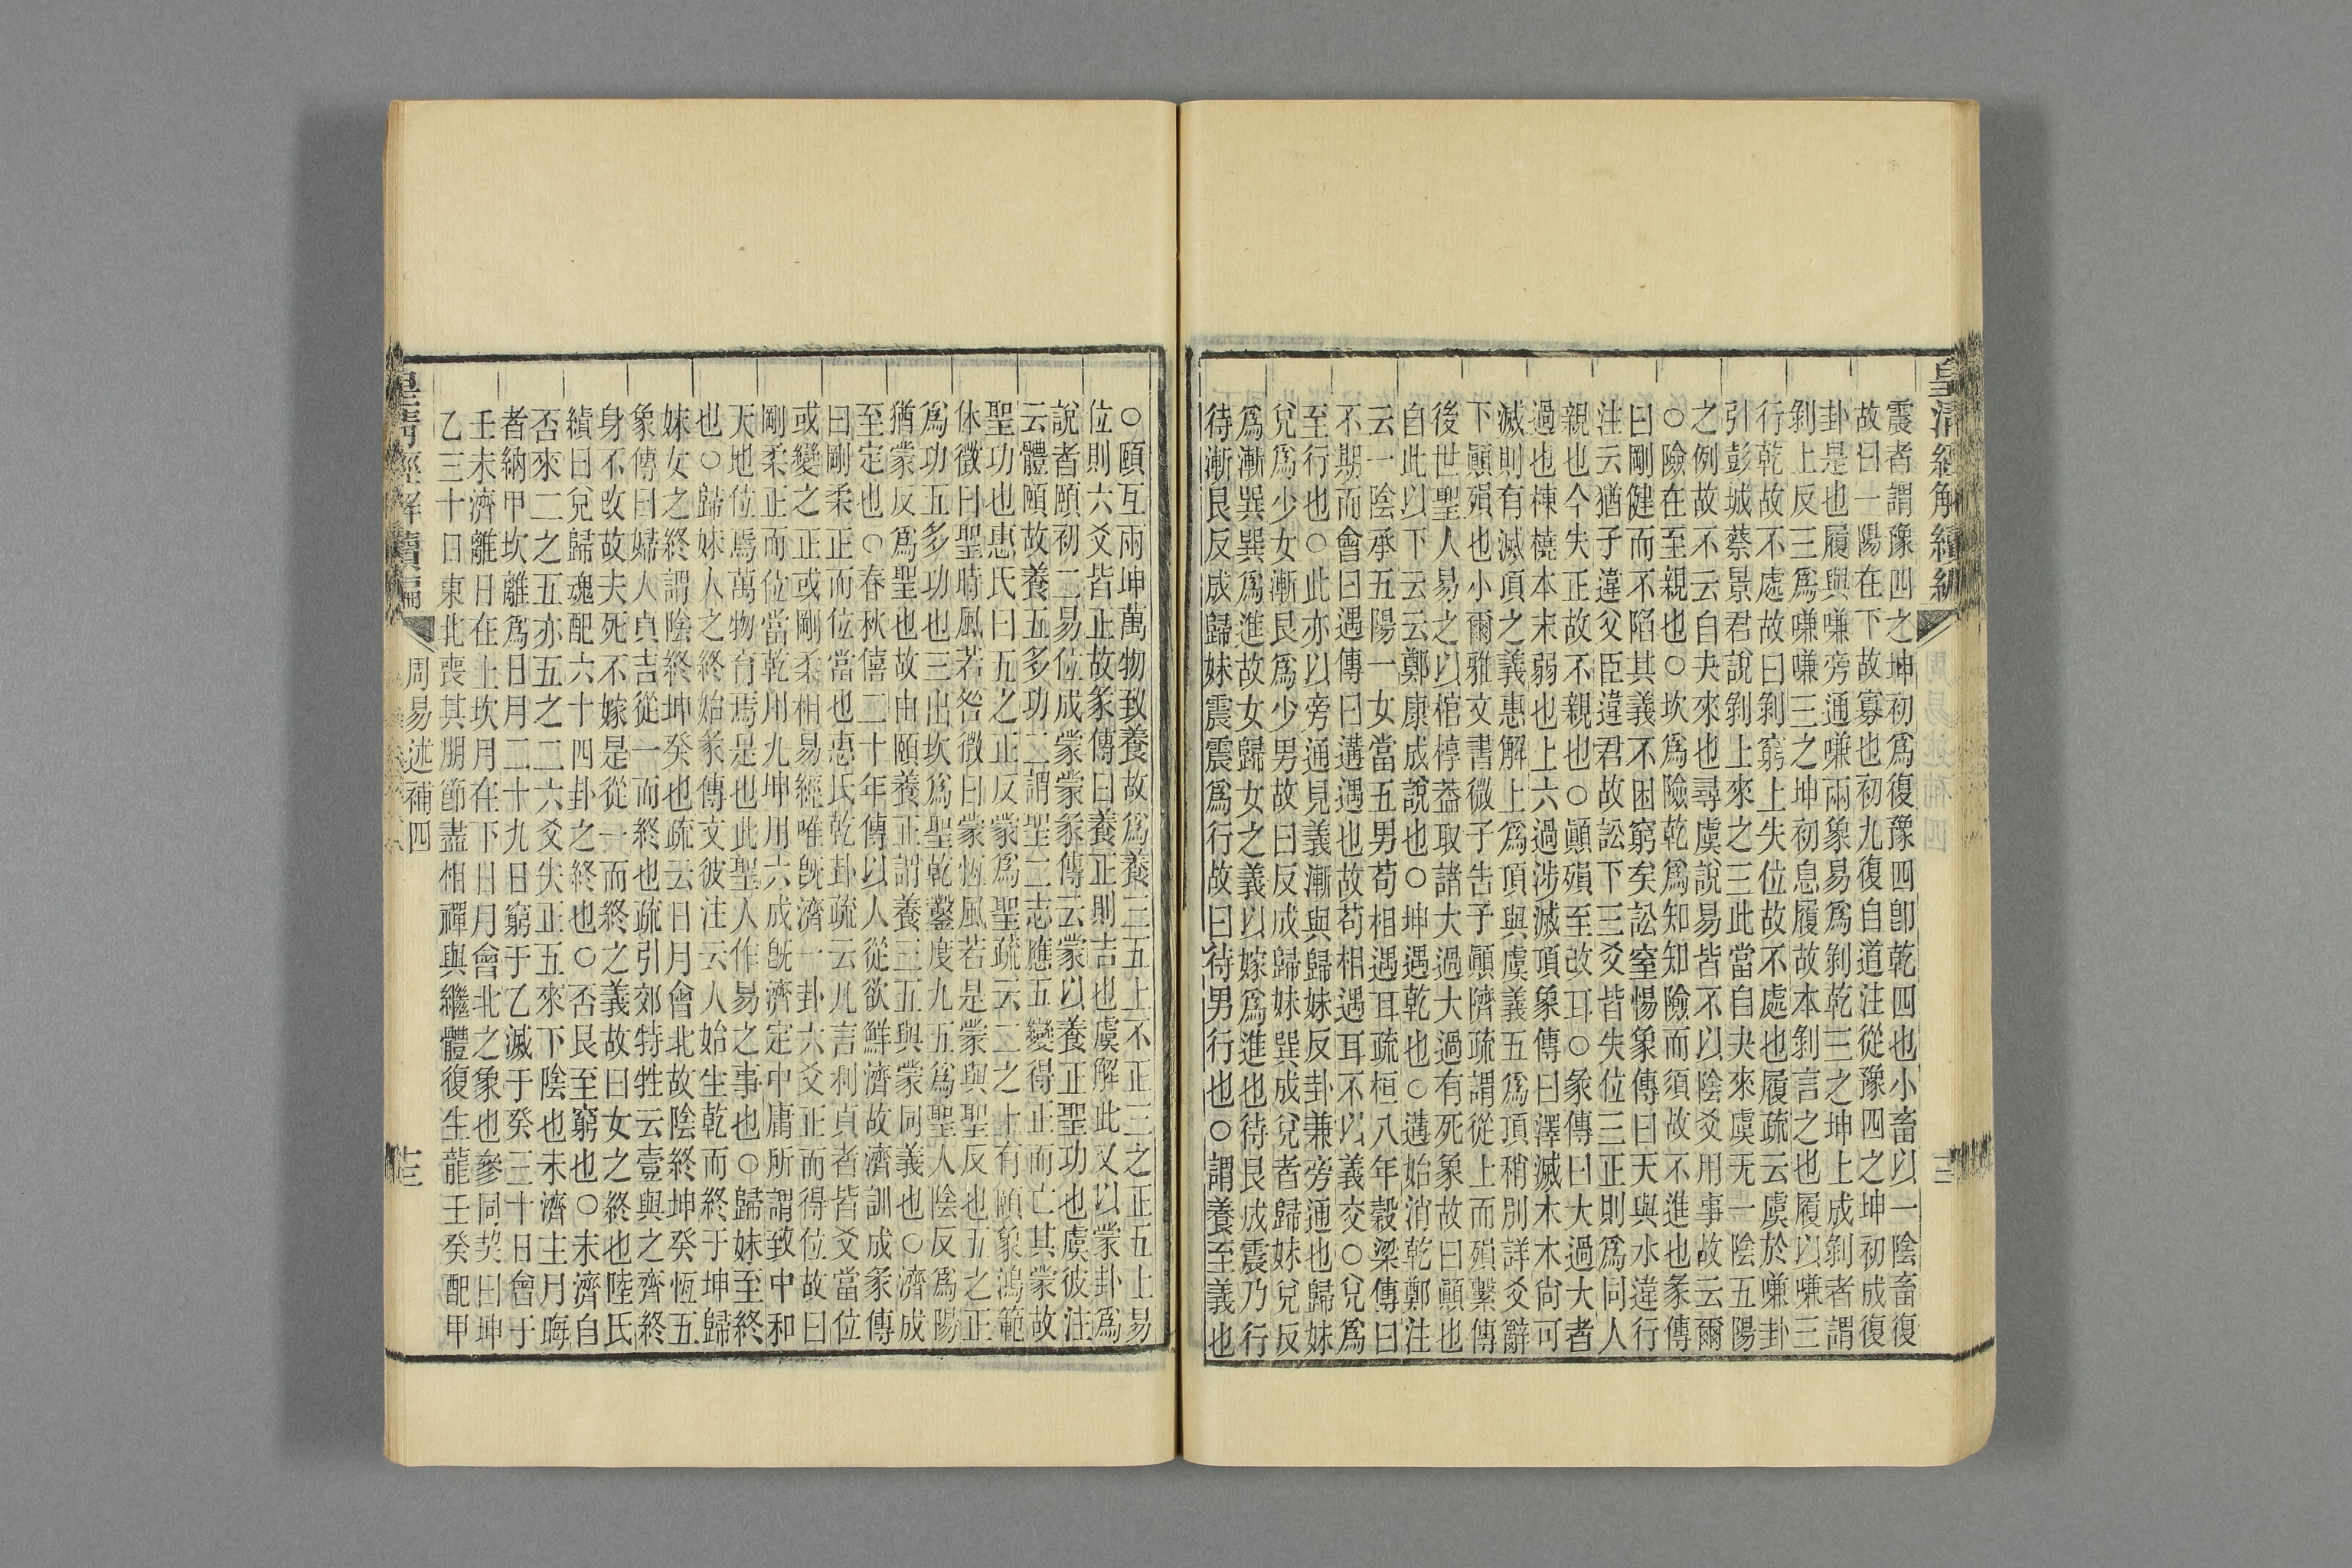 皇清經解續編
震者謂豫四之坤初爲復豫四卽乾四也小畜以一陰畜復
故曰一陽在下故寡也初九復自道注從豫四之坤初成復
卦是也履與嗛旁通嗛兩象易爲剝乾三之坤上成剝者謂
剝上反三爲嗛嗛三之坤初息履故本剝言之也履以嗛三
行乾故不處故曰剝窮上失位故不處也履疏云虞於嗛卦
引彭城蔡景君說剝上來之三此當自夬來虞无一陰五陽
之例故不云自夬來也尋虞說易皆不以陰爻用事故云爾
○險在至親也○坎爲險乾爲知知險而須故不進也彖傳
曰剛健而不陷其義不困窮矣訟窒惕象傳曰天與水違行
注云猶子違父臣違君故訟下三爻皆失位三正則爲同人
親也今失正故不親也○顚殞至改耳○彖傳曰大過大者
過也棟橈本末弱也上六過涉滅頂象傳曰澤滅木木尙可
滅則有滅頂之義惠解上爲頂與虞義五爲頂稍別詳爻辭
下顚殞也小爾雅文書微子告予顚隮疏謂從上而殞繫傳
後世聖人易之以棺椁葢取諸大過大過有死象故曰顚也
自此以下云云鄭康成說也○坤遇乾也○遘始消乾鄭注
云一陰承五陽一女當五男苟相遇耳疏桓八年穀梁傳曰
不期而會曰遇傳曰遘遇也故苟相遇耳不以義交○兌爲
至行也○此亦以旁通見義漸與歸妹反卦兼旁通也歸妹
兌爲少女漸艮爲少男故曰反成歸妹巽成兌者歸妹兌反
爲漸巽巽爲進故女歸女之義以嫁爲進也待艮成震乃行
待漸艮反成歸妹震震爲行故曰待男行也○謂養至義也
○頤互兩坤萬物致養故爲養三五上不正三之正五上易
位則六爻皆正故彖傳曰養正則吉也虞解此又以蒙卦爲
說者頤初二易位成蒙蒙彖傳云蒙以養正聖功也虞彼注
云體頤故養五多功二謂聖二志應五變得正而亡其蒙故
聖功也惠氏曰五之正反蒙爲聖疏云二之上有頤象鴻範
休徵曰聖時風若咎徵曰蒙恆風若是蒙與聖反也五之正
爲功五多功也三出坎爲聖乾鑿度九五爲聖人陰反爲陽
猶蒙反爲聖也故由頤養正謂養三五與蒙同義也○濟成
至定也○春秋僖二十年傳以人從欲鮮濟故濟訓成彖傳
曰剛柔正而位當也惠氏乾卦疏云凡言利貞者皆爻當位
或變之正或剛柔相易經唯旣濟一卦六爻正而得位故曰
剛柔正而位當乾用九坤用六成旣濟定中庸所謂致中和
天地位焉萬物育焉是也此聖人作易之事也○歸妹至終
也○歸妹人之終始彖傳文彼注云人始生乾而終于坤歸
妹女之終謂陰終坤癸也疏云日月會北故陰終坤癸恆五
象傳曰婦人貞吉從一而終也疏引郊特牲云壹與之齊終
身不攺故夫死不嫁是從一而終之義故曰女之終也陸氏
績曰兌歸魂配六十四卦之終也○否艮至窮也○未濟自
否來二之五亦五之二六爻失正五來下陰也未濟主月晦
者納甲坎離爲日月二十九日窮于乙滅于癸三十日會于
壬未濟離日在上坎月在下日月會北之象也參同契曰坤
乙三十日東北喪其朋節盡相禪與繼體復生龍壬癸配甲
皇清經解續編
周易述補四